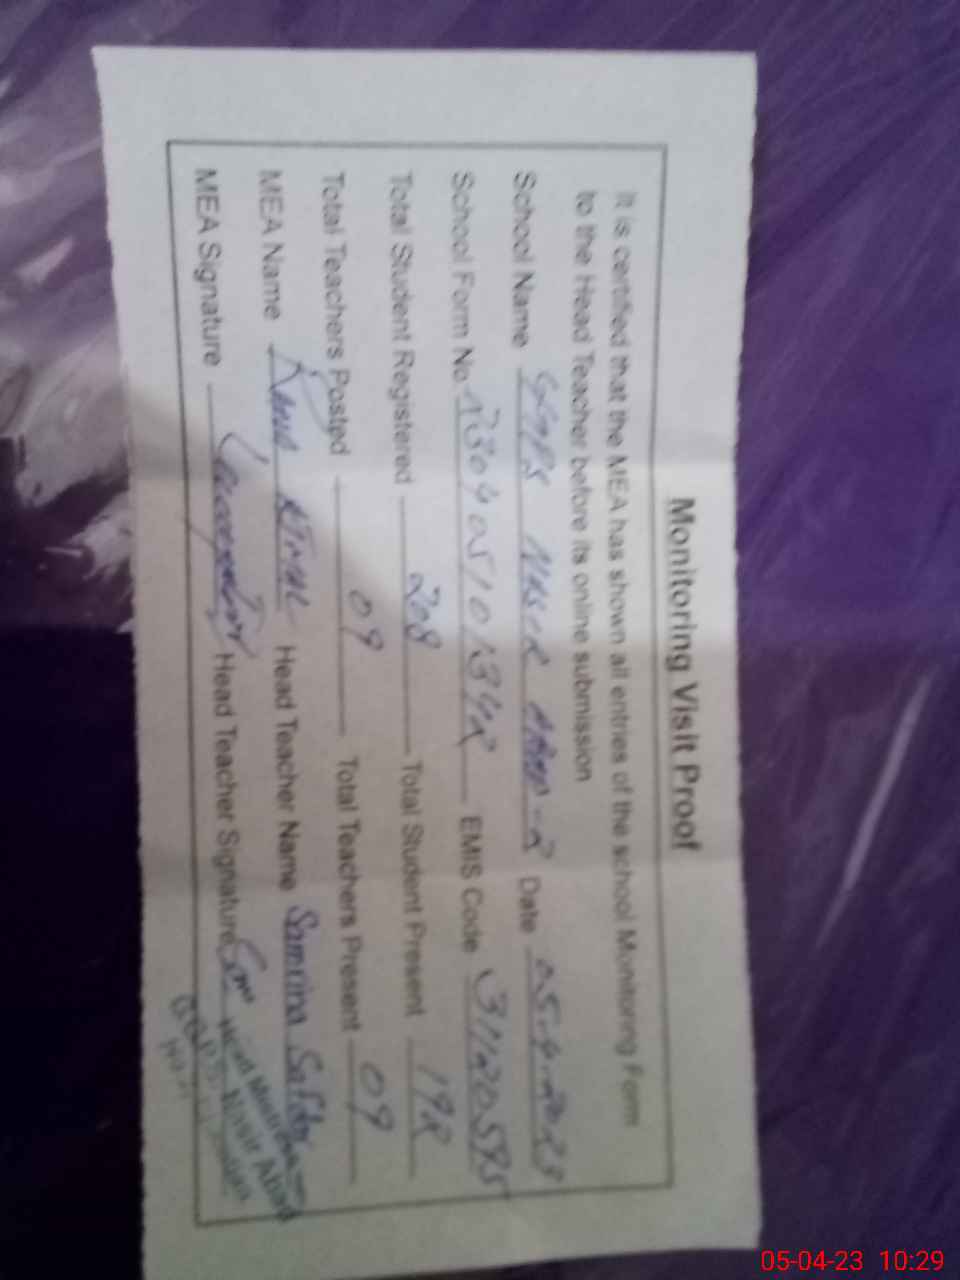 Monitoring Visit Proof
It is certified that the MEA has shown all entries of the school Monitoring Form
to the Head Teacher before its online submission
School Name GGPS Nasir Abad-2 Date 05-4-2023
School Form No. EMIS Code 31120595
Total Student Registered 208 Total Student Present 192
Total Teachers Posted 09 Total Teachers Present 09
MEA Name Head Teacher Name Samrina Safdar
MEA Signature Head Teacher Signature
Head Mistress
Nasir Abad
05-04-23 10:29